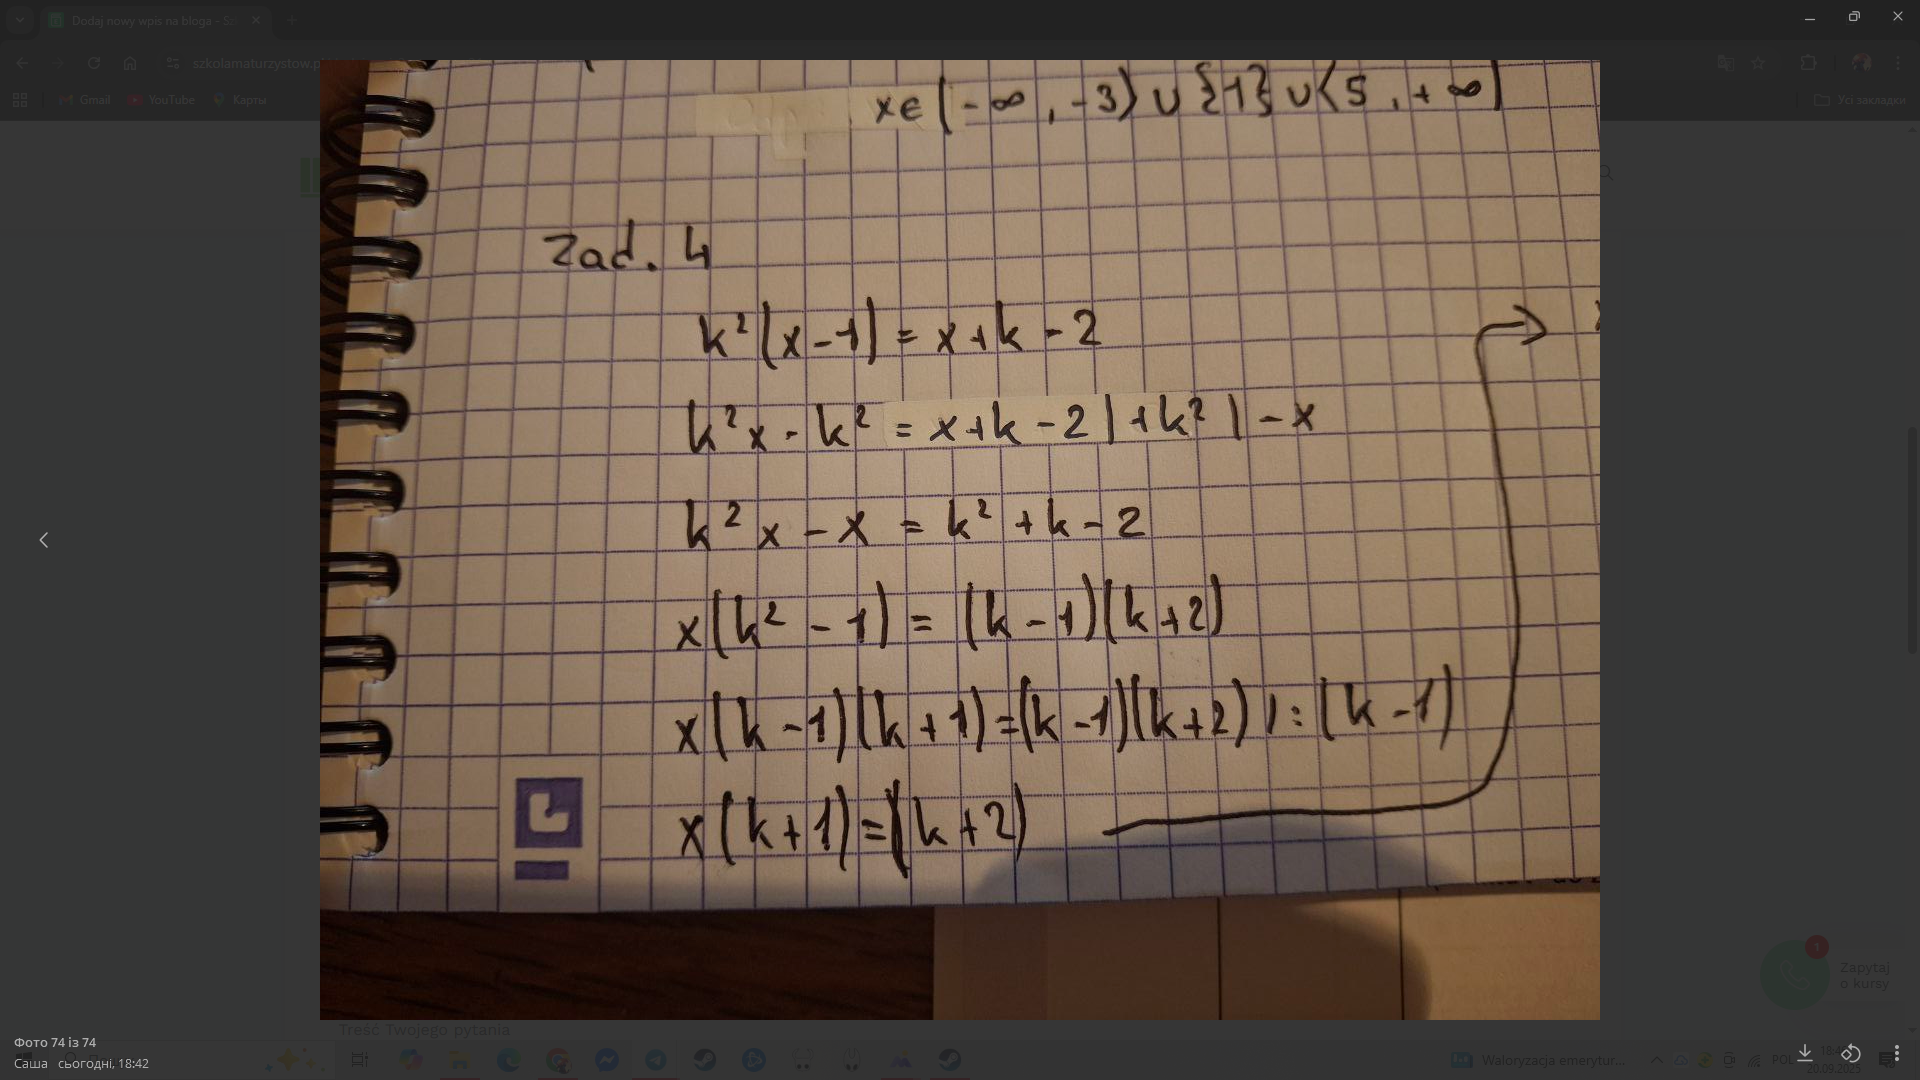 Dodaj nowy wpis na bloga - Sz
szkolamaturzystow.p
Gmail YouTube Карты Усі закладки
x∈(-∞, -3) ∪ {1} ∪ <5, +∞)
Zad. 4
k²(x-1) = x+k-2
k²x - k² = x+k-2 | +k² | -x
k²x - x = k² + k - 2
x(k² - 1) = (k - 1)(k+2)
x(k-1)(k+1)=(k-1)(k+2) | : (k-1)
x(k+1)=(k+2)
1
Zapytaj
o kursy
Treść Twojego pytania
Фото 74 із 74
Саша сьогодні, 18:42
Waloryzacja emerytur...
POL
20.09.2025